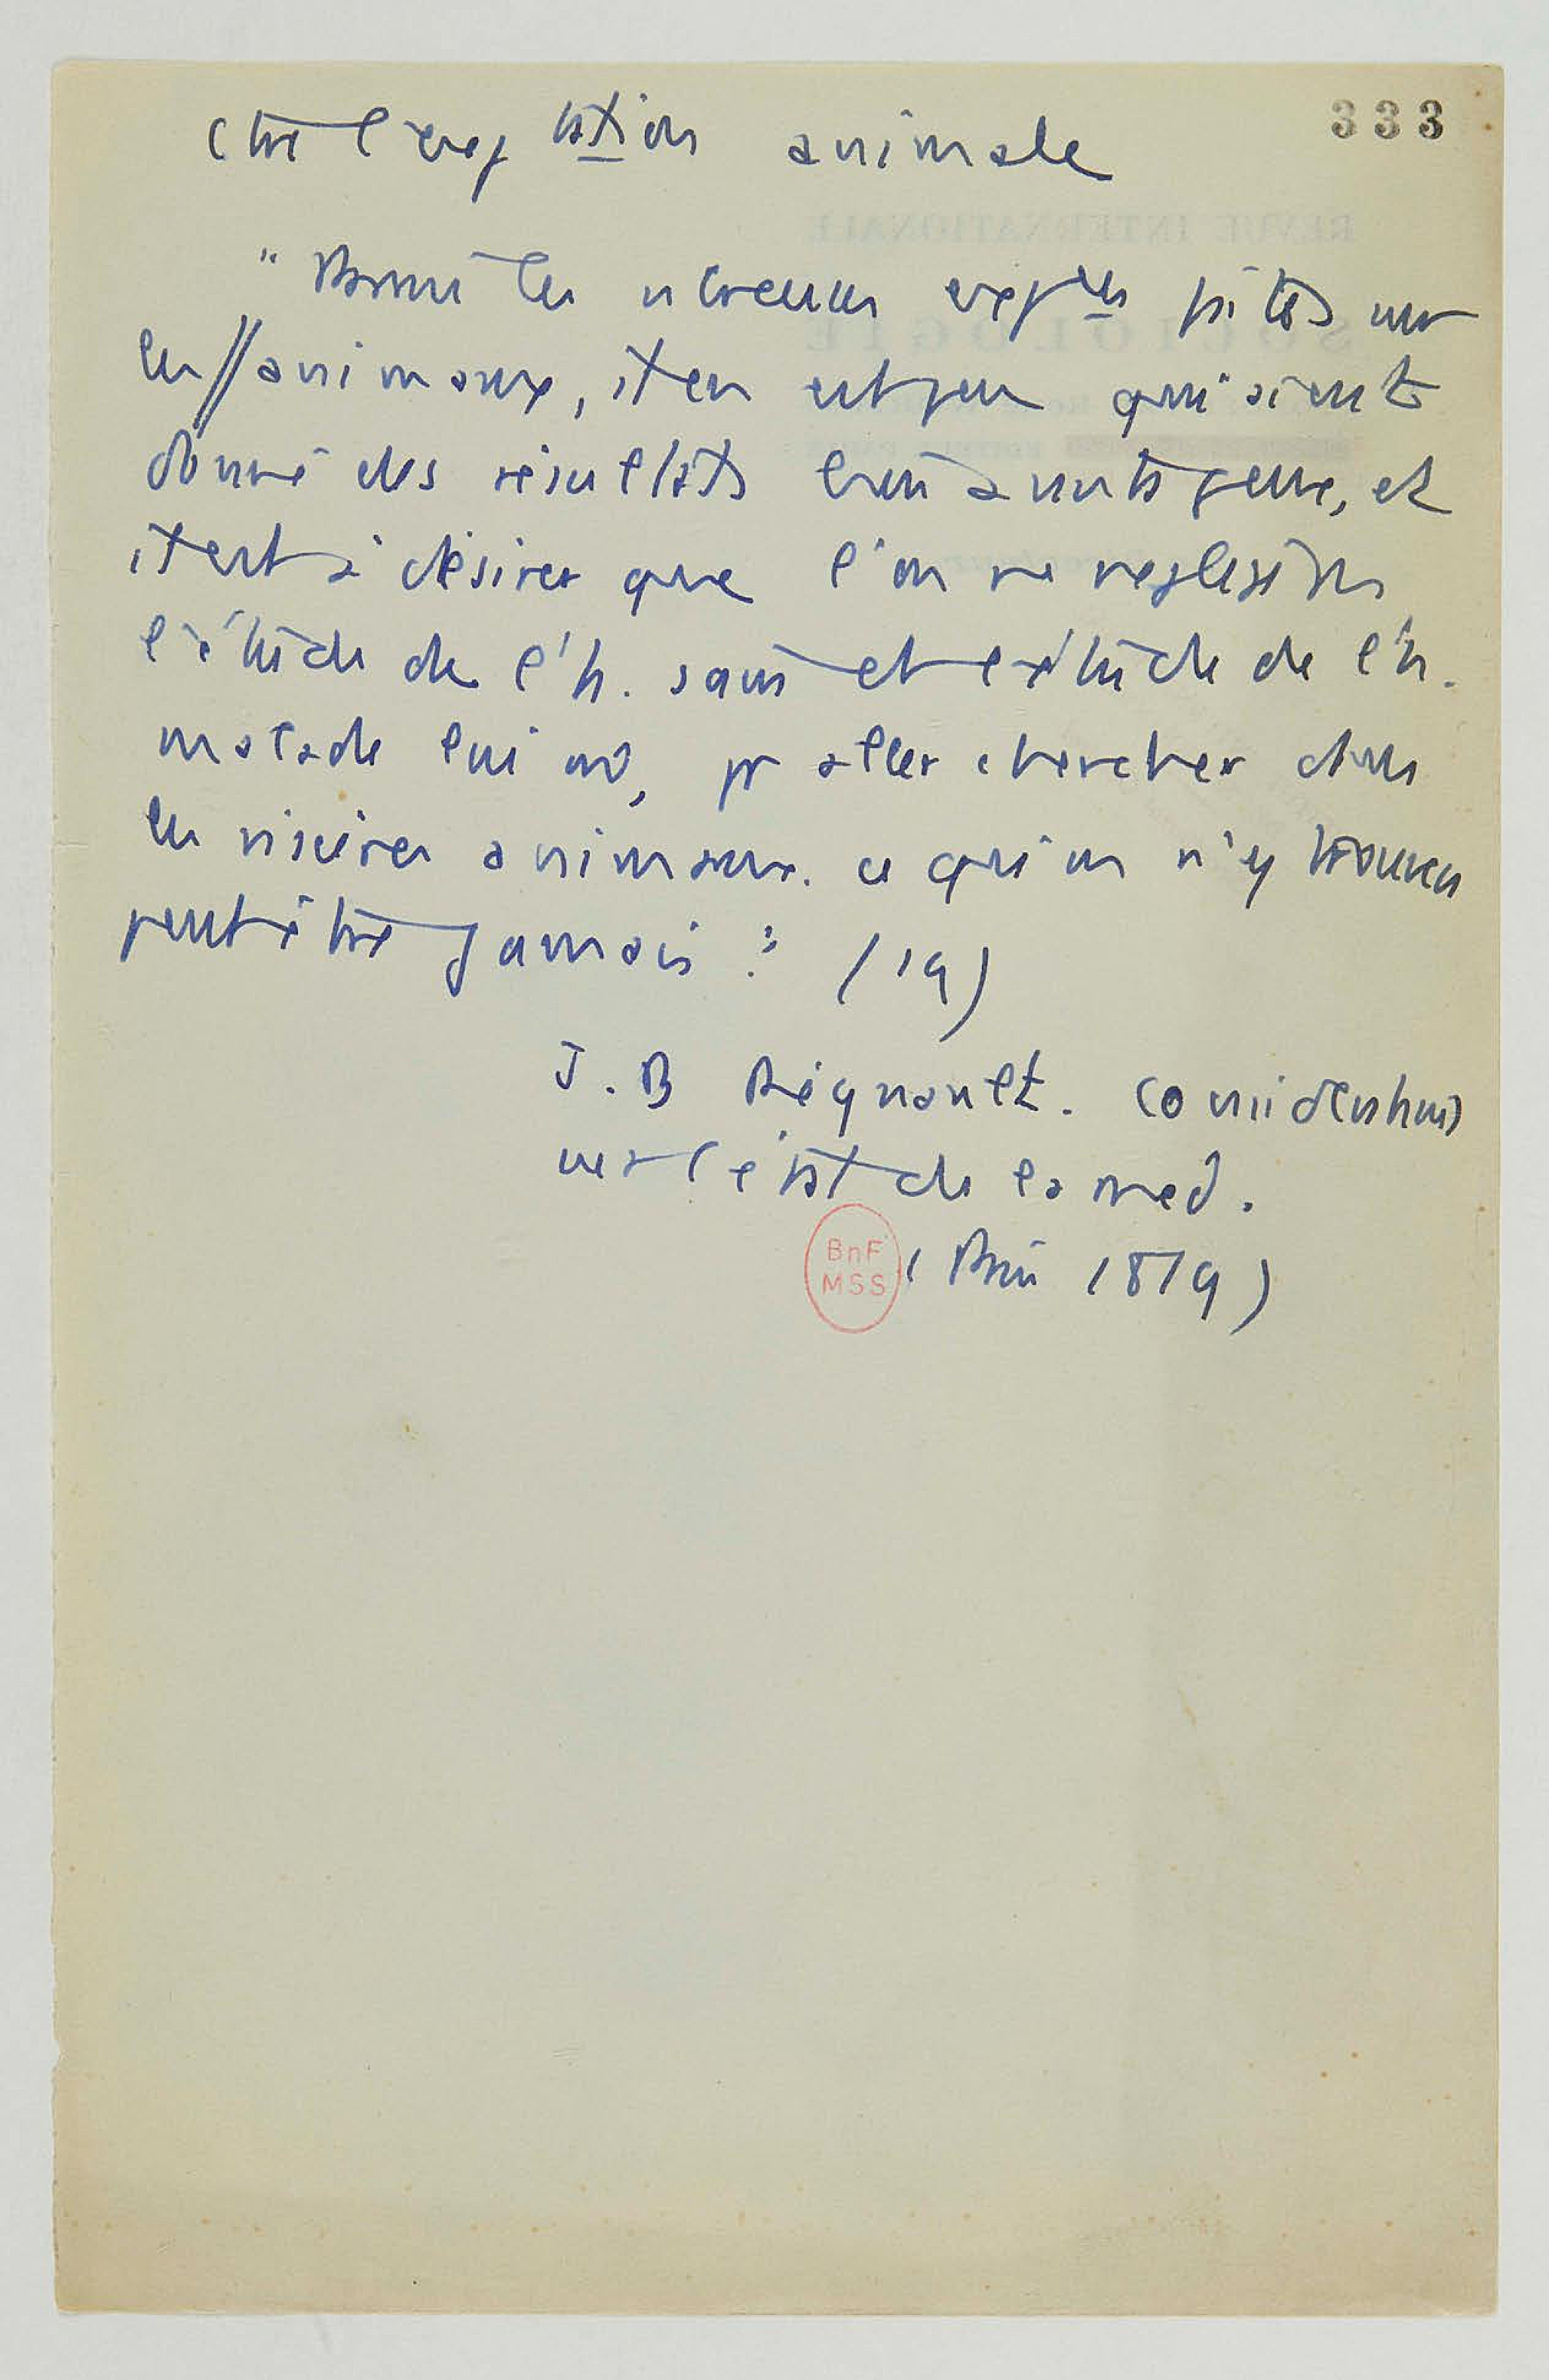 333
Ctre l'expé tation animale
"Parmi les nbreuses expces faites sur
les // animaux, il en est peu qui aient
donné des résultats bien avantageux, et
il est à désirer que l'on ne néglige plus
l'étude de l'h. sain et l'étude de l'h.
malade lui m̂, pr aller chercher dans
les viscères animaux. ce qu'on n'y trouvera
peut être jamais." (19)
J. B Régnault. Considérations
sur l'état de la med.
(Paris 1819)
BnF
MSS
REVUE INTERNATIONALE
SOCIOLOGIE